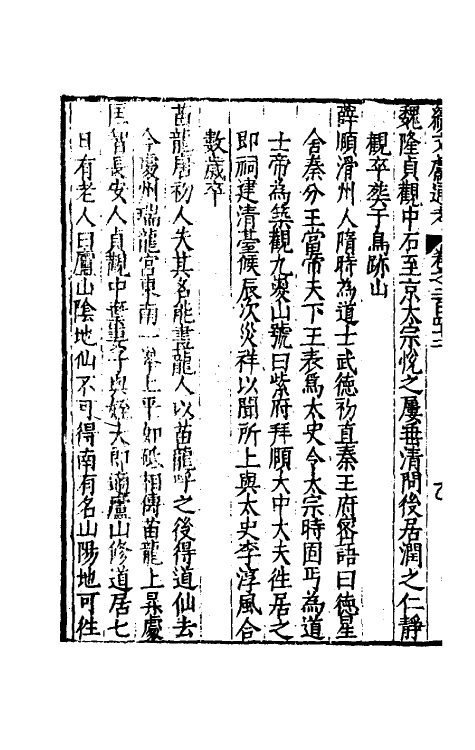 續文獻通考 卷之二百四十三
魏隆貞觀中召至京太宗悅之屢垂清問後居潤之仁靜
觀卒葬于鳥跡山
薛頤滑州人隋時為道士武德初直秦王府密語曰德星
舍秦分王當帝天下王表為太史令太宗時固丐為道
士帝為築觀九嵏山號曰紫府拜頤大中大夫徃居之
即祠建清臺候辰次災祥以聞所上與太史李淳風合
數歲卒
苗龍唐初人失其名能畫龍人以苗龍呼之後得道仙去
今處州瑞龍宮東南一峯上平如砥相傳苗龍上昇處
匡智長安人貞觀中棄妻子與姪夫即適廬山修道居七
日有老人曰廬山陰地仙不可得南有名山陽地可徃